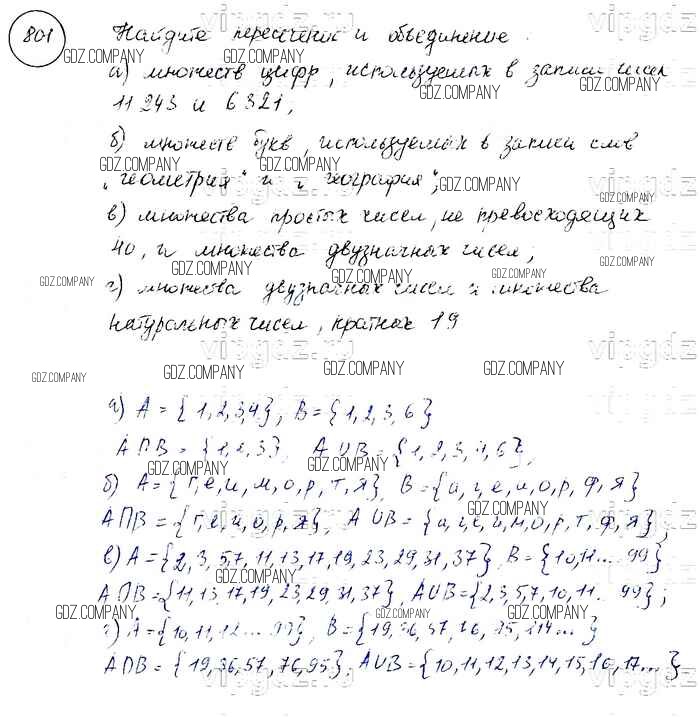 801
Найдите пересечение и объединение
а) множеств цифр, используемых в записи чисел
11 243 и 6321,
б) множеств букв, используемых в записи слов
„геометрия" и „география";
в) множества простых чисел, не превосходящих
40, и множества двузначных чисел;
г) множества двузначных чисел и множества
натуральных чисел, кратных 19
а) A = {1,2,3,4}, B = {1,2,3,6}
A∩B = {1,2,3}, A∪B = {1,2,3,4,6},
б) A = {г,е,и,м,о,р,т,я}, B = {а,г,е,и,о,р,ф,я}
A∩B = {г,е,и,о,р,я}, A∪B = {а,г,е,и,м,о,р,т,ф,я},
в) A = {2,3,5,7,11,13,17,19,23,29,31,37}, B = {10,11...99}
A∩B = {11,13,17,19,23,29,31,37}, A∪B = {2,3,5,7,10,11...99};
г) A = {10,11,12...99}, B = {19,36,57,76,95,114...}
A∩B = {19,36,57,76,95}, A∪B = {10,11,12,13,14,15,16,17...}
GDZ.COMPANY
vipgdz.ru